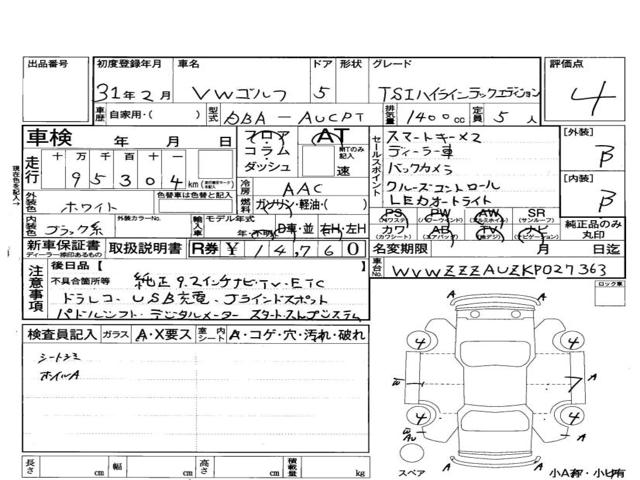 出品番号 初度登録年月 車名 ドア 形状 グレード 評価点
31年2月 VWゴルフ 5 TSIハイラインテックエディション 4
車歴 自家用・( ) 型式 DBA-AUCPT 排気量 1400cc 定員 5人
車検 年 月 日 フロア コラム ダッシュ AT MTのみ記入 速
走行 十万 万 千 百 十 一
9 5 3 0 4 km
現在色を記入→
外装色 ホワイト 色替車は色替色 元色
冷房 AAC
燃料 ガソリン・軽油・( )
内装色 ブラック系 外装カラーNo. 輸入車 モデル年式 年・不明 D車・並 右H・左H
新車保証書 ディーラー捺印あるもの 取扱説明書 R券 ¥ 14,760
セールスポイント
スマートキー×2
ディーラー車
バックカメラ
クルーズコントロール
LEDオートライト
PS (パワステ) PW (パワーウィンドウ) AW (アルミホイル) SR (サンルーフ)
カワ (カワシート) AB (エアバッグ) TV (地デジ) ナビ (ナビゲーション)
純正品のみ丸印
[外装] B
[内装] B
名変期限 月 日迄
車台No. WVWZZZAUZKP027363
注意事項
後日品【 】
不具合箇所等 純正9.2インチナビ・TV・ETC
ドラレコ・USB充電・ブラインドスポット
パドルシフト・デジタルメーター スタートストップシステム
ロック車
検査員記入 ガラス A・X要ス 室内シート A・コゲ・穴・汚れ・破れ
シートシミ
ホイルA
4 4
B A 7
4 4
B AU A
A
スペア
小A有・小U有
長さ cm 幅 cm 高さ cm 積載量 kg